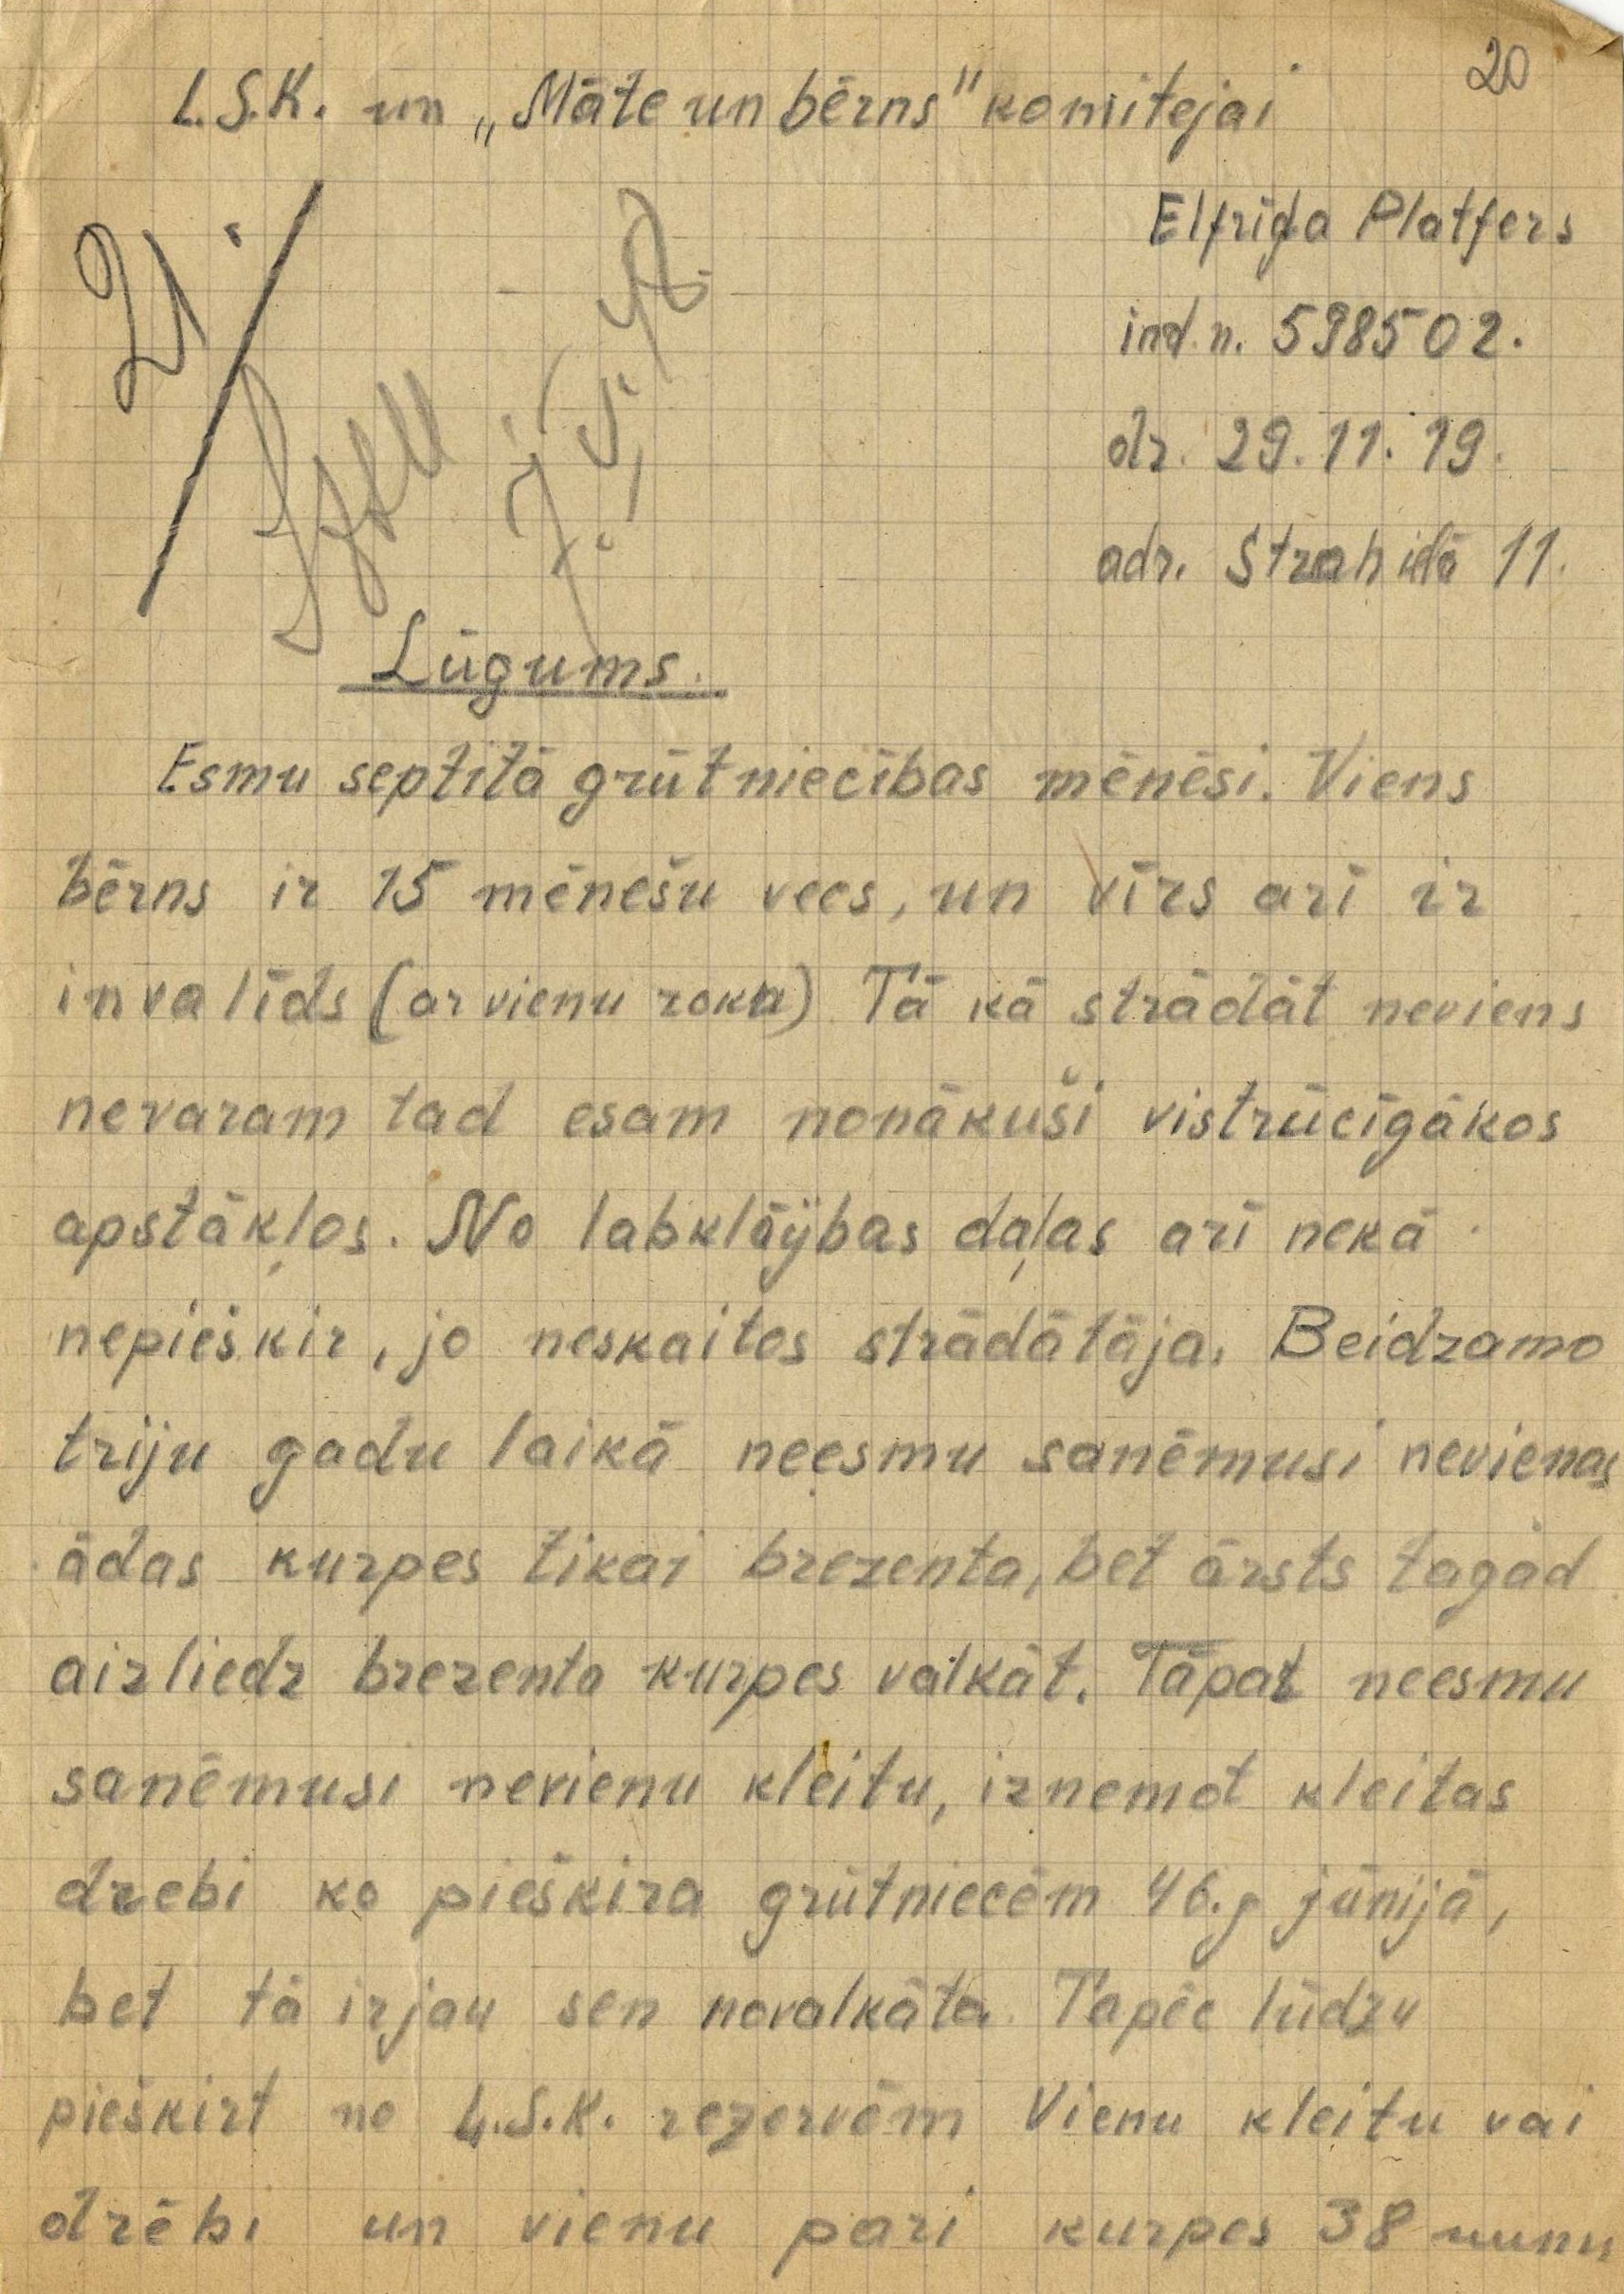 20
L.S.K. un „Māte un bērns" komitejai
Elfrīda Platfers
ind. n. 598502.
dz. 29.11.19.
adr.
11.
21.
Lūgums.
Esmu septitā grūtniecības mēnēsi. Viens
bērns ir 15 mēnešu vecs, un vīrs arī ir
invalīds (ar vienu roku) Tā kā strādāt neviens
nevaram tad esam nonākuši vistrūcīgākos
apstākļos. No labklāijbas daļas arī nekā
nepiešķir, jo neskaitos strādātāja. Beidzamo
triju gadu laikā neesmu sanēmusi nevienas
ādas kurpes tikai brezenta, bet ārsts tagad
aizliedz brezenta kurpes valkāt. Tāpat neesmu
sanēmusi nevienu kleitu, iznemot kleitas
drebi ko pieškira grūtniecēm 46.g jūnijā,
bet tā ir jau sen novalkāta. Tapēc lūdzu
pieškirt no L.S.K. rezervēm Vienu kleitu vai
drēbi un vienu pari kurpes 38